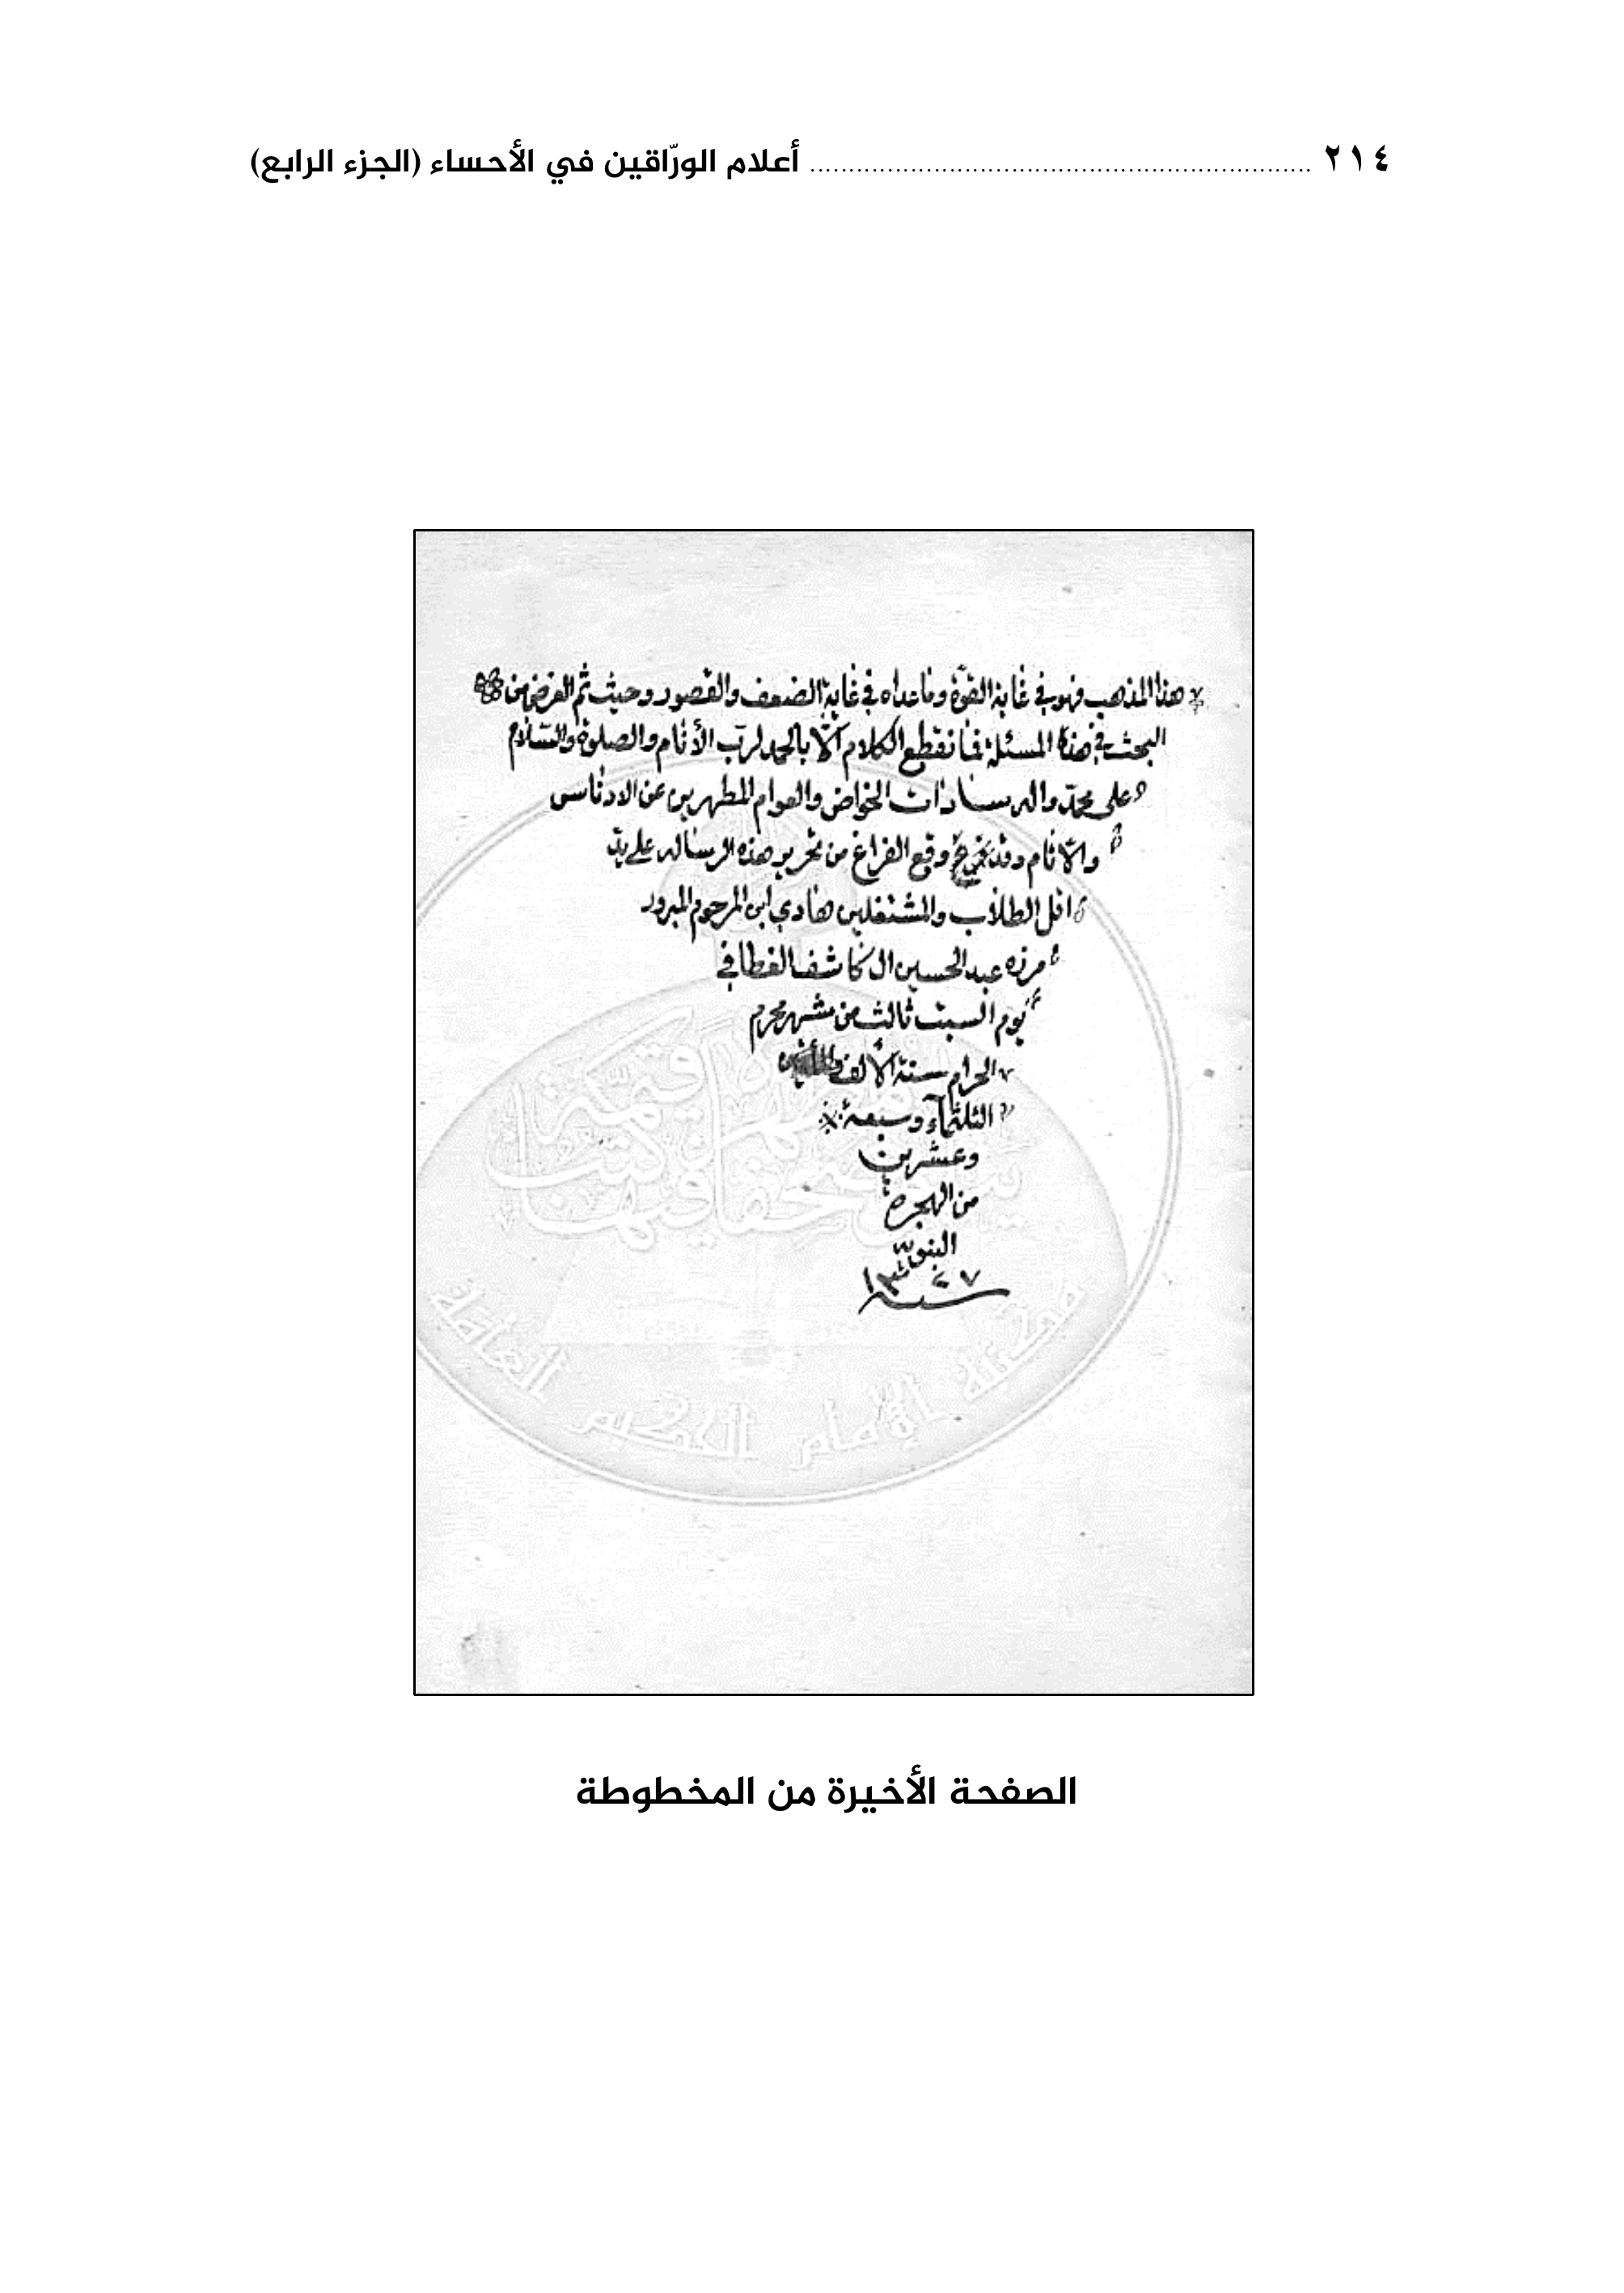 ٢١٤ ............................................................... أعلام الورّاقين في الأحساء (الجزء الرابع)
هذا المذهب فهو في غاية القوّة وما عداه في غاية الضعف والقصور وحيث تمّ الغرض من
البحث في هذه المسئلة فما نقطع الكلام الّا بالحمد لرب الأنام والصلوة والسّلام
على محمّد واله سادات الخواص والعوام المطهرين عن الادناس
والآثام وقد وقع الفراغ من تحرير هذه الرساله على يد
اقل الطلاب والمشتغلين هادي ابن المرحوم المبرور
مرزه عبد الحسين ال كاشف الغطا في
يوم السبت ثالث من شهر محرم
الحرام سنة الألف
الثلثمآء وسبعة
وعشرين
من الهجرة
النبويّة
سنة ١٣٢٧
قيّمة
فيها كتب
مكتبة الإمام الحكيم العامة
الصفحة الأخيرة من المخطوطة